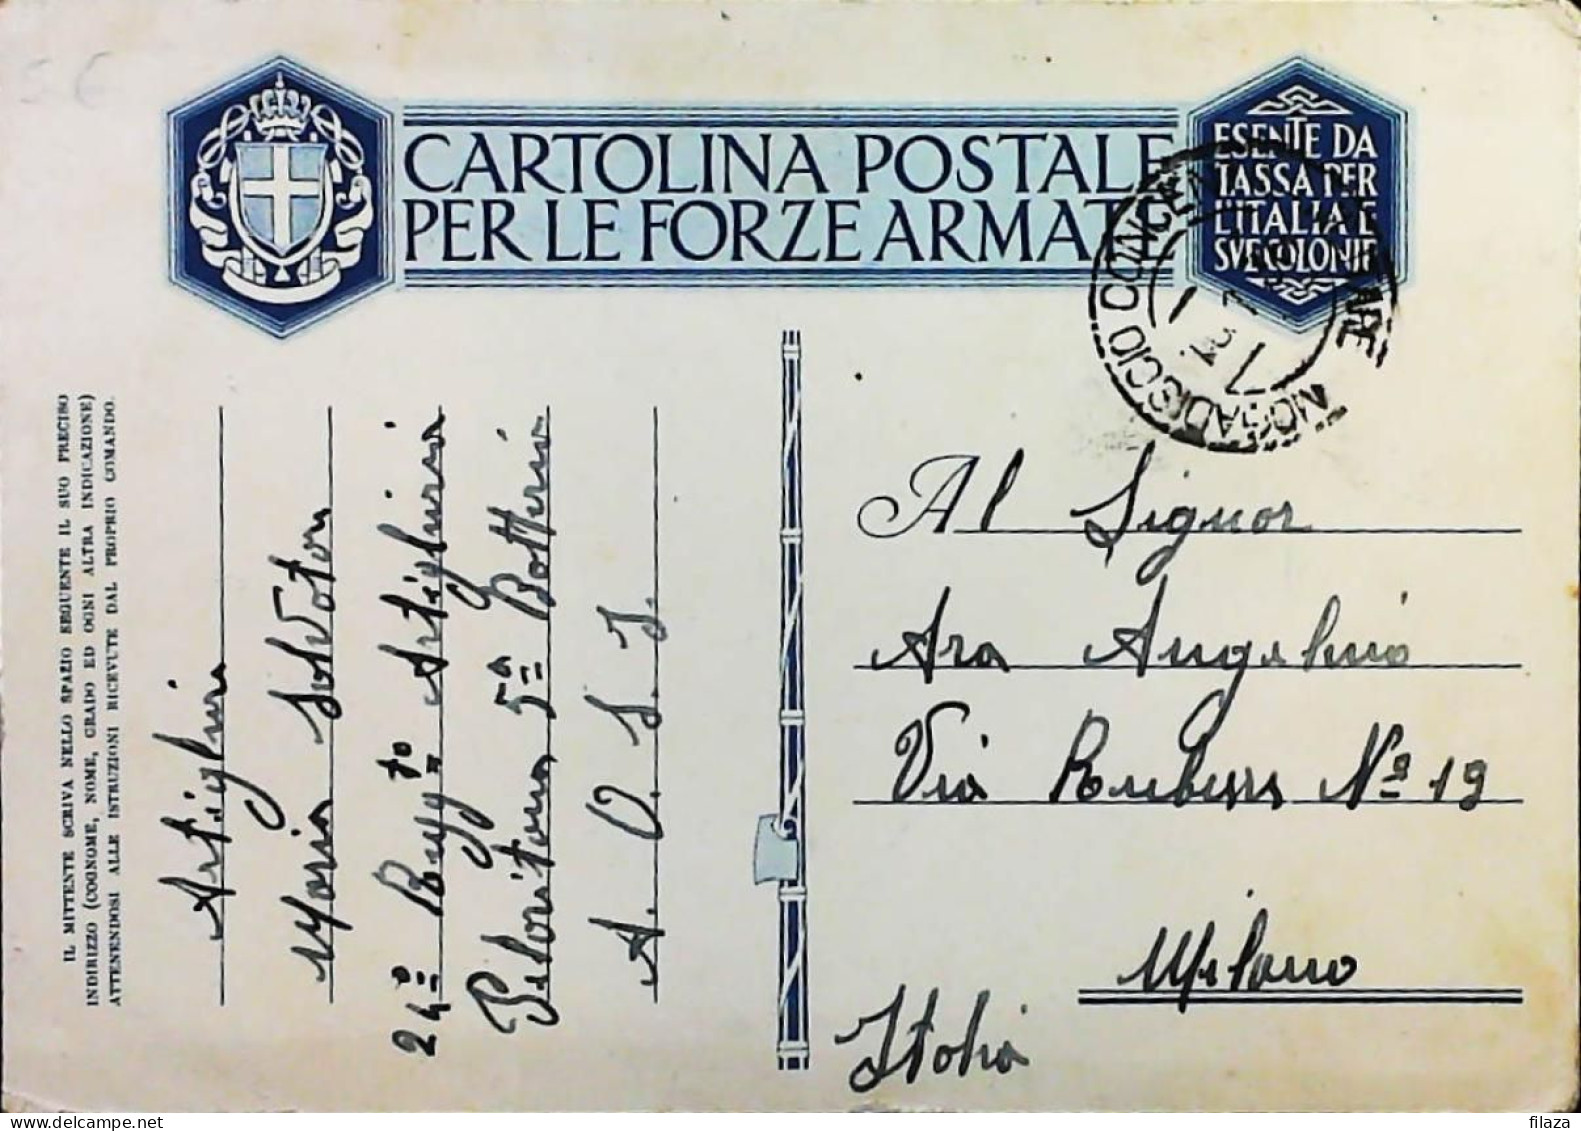 CARTOLINA POSTALE
PER LE FORZE ARMATE
ESENTE DA
TASSA PER
L'ITALIA E
SVE COLONIE
MOGADISCIO CONCENTR
IL MITTENTE SCRIVA NELLO SPAZIO SEGUENTE IL SUO PRECISO
INDIRIZZO (COGNOME, NOME, GRADO ED OGNI ALTRA INDICAZIONE)
ATTENENDOSI ALLE ISTRUZIONI RICEVUTE DAL PROPRIO COMANDO.
Artiglier
Mario Salvator
24º Regg.to Artiglieria
5ª Batteria
A. O. S. I.
Al Signor
Ara Angelino
Via Rubens Nº 19
Milano
Italia
filaza